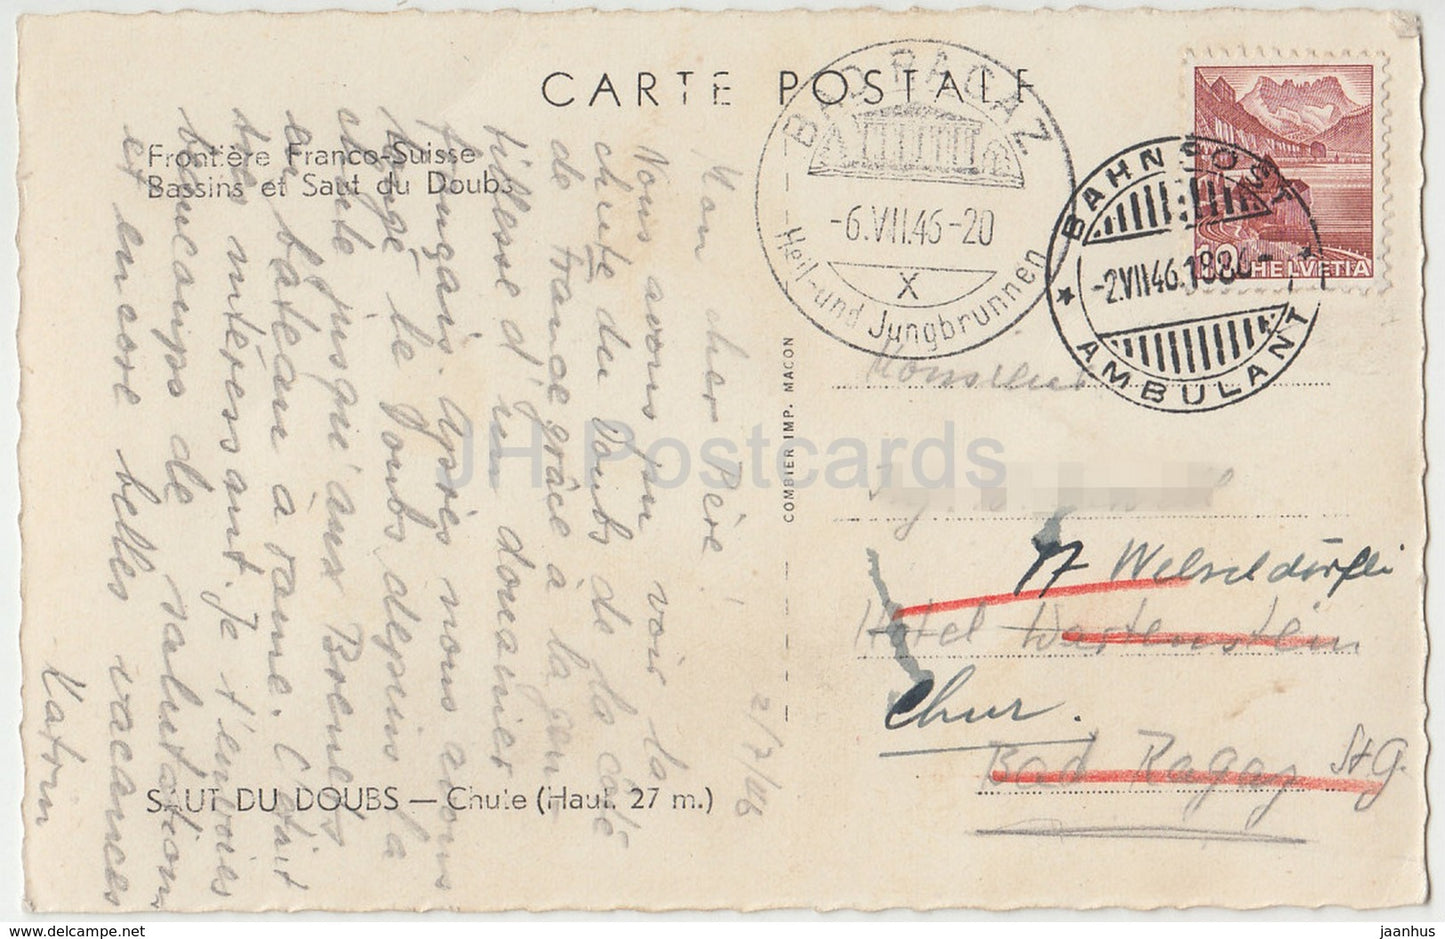 CARTE POSTALE
Frontière Franco-Suisse
Bassins et Saut du Doubs
SAUT DU DOUBS — Chute (Haut. 27 m.)
COMBIER IMP. MACON
BAD RAGAZ
-6.VII.46-20
X
Heil- und Jungbrunnen
BAHNPOST
-2.VII.46.1880-
★ AMBULANT ★
10 HELVETIA
2/7/46
Mon cher Père!
Nous avons pu voir la
chute du Doubs de la côté
de france grâce à la gen-
tillesse d'un douanier
français. Après nous avons
longé le Doubs depuis la
chute jusqu'aux Brenets
en bateau à rame. C'était
très intéressant. Je t'envoies
beaucoups de salutations
et encore belles vacances
Katrin
Monsieur
17 Welschdörfli
Hotel Wartenstein
Chur.
Bad Ragaz St G.
JH Postcards
www.delcampe.net
jaanhus